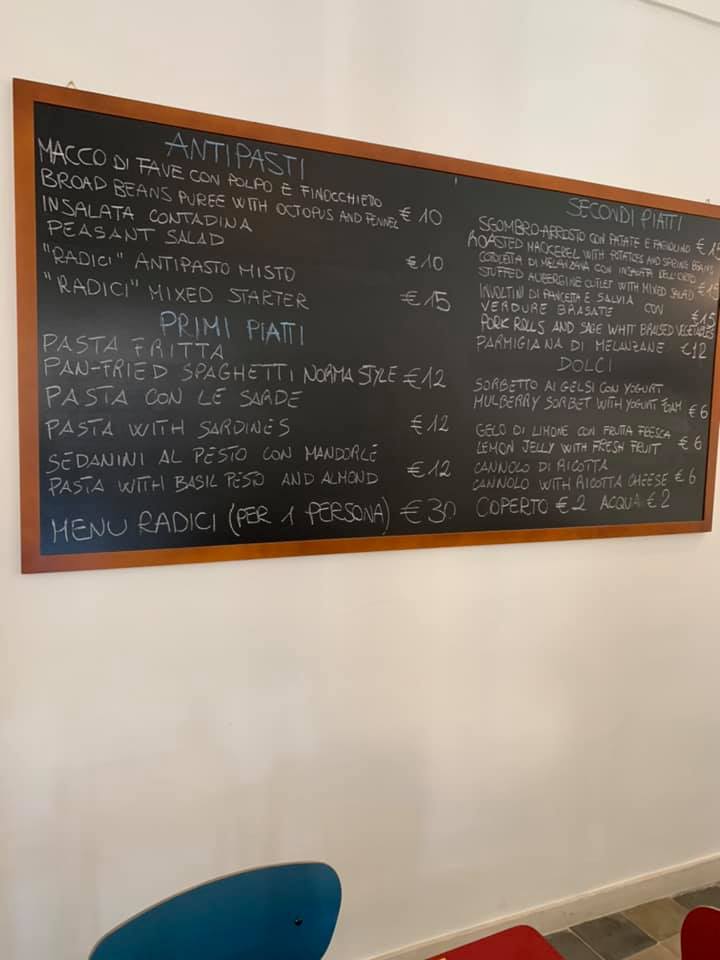 ANTIPASTI
MACCO DI FAVE CON POLPO E FINOCCHIETTO
BROAD BEANS PUREE WITH OCTOPUS AND FENNEL € 10
INSALATA CONTADINA
PEASANT SALAD €10
"RADICI" ANTIPASTO MISTO
"RADICI" MIXED STARTER €15
PRIMI PIATTI
PASTA FRITTA
PAN-FRIED SPAGHETTI NORMA STYLE €12
PASTA CON LE SARDE
PASTA WITH SARDINES €12
SEDANINI AL PESTO CON MANDORLE
PASTA WITH BASIL PESTO AND ALMOND €12
MENU RADICI (PER 1 PERSONA) €30
SECONDI PIATTI
SGOMBRO ARROSTO CON PATATE E FAGIOLINO €
ROASTED MACKEREL WITH POTATOES AND SPRING BEANS
COTOLETTA DI MELANZANA CON INSALATA DELL'ORTO
STUFFED AUBERGINE CUTLET WITH MIXED SALAD €
INVOLTINI DI PANCETTA E SALVIA CON
VERDURE BRASATE €15
PORK ROLLS AND SAGE WHIT BRAISED VEGETABLES
PARMIGIANA DI MELANZANE €12
DOLCI
SORBETTO AI GELSI CON YOGURT
MULBERRY SORBET WITH YOGURT FOAM € 6
GELO DI LIMONE CON FRUTTA FRESCA
LEMON JELLY WITH FRESH FRUIT € 6
CANNOLO DI RICOTTA
CANNOLO WITH RICOTTA CHEESE € 6
COPERTO € 2 ACQUA € 2